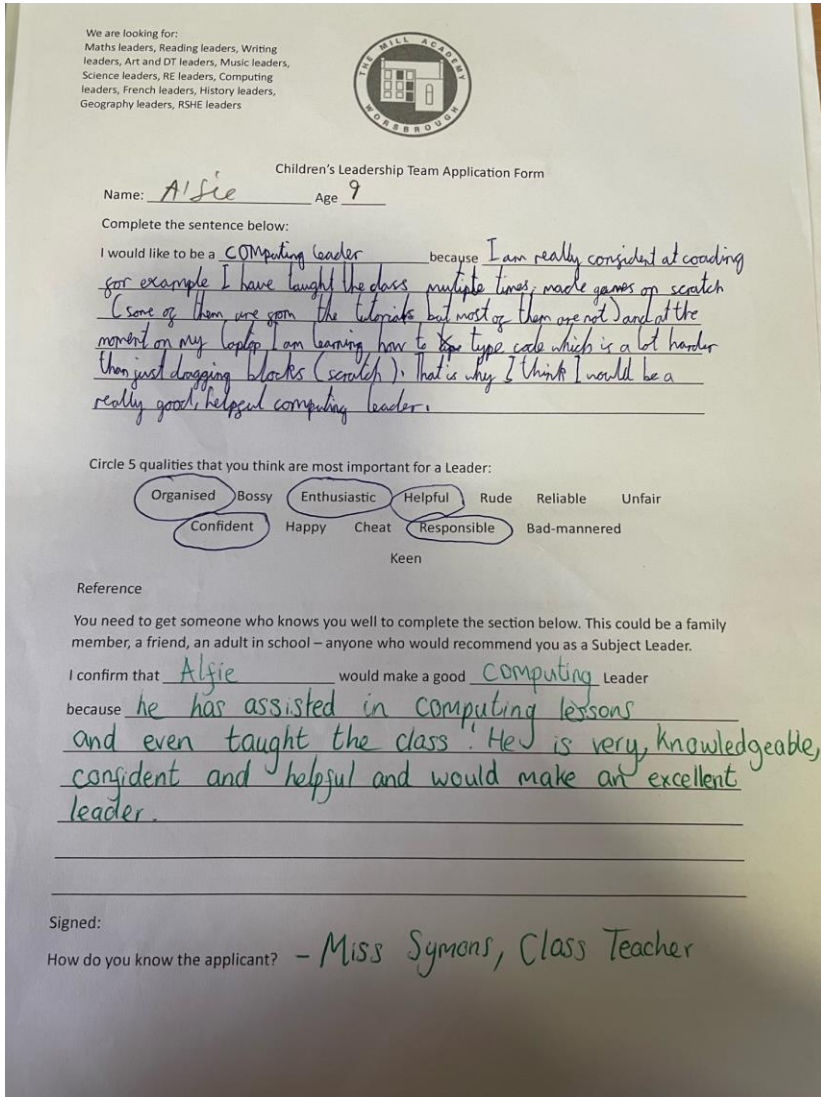 We are looking for:
Maths leaders, Reading leaders, Writing
leaders, Art and DT leaders, Music leaders,
Science leaders, RE leaders, Computing
leaders, French leaders, History leaders,
Geography leaders, RSHE leaders
THE MILL ACADEMY
WORSBROUGH
Children's Leadership Team Application Form
Name: Alfie Age 9
Complete the sentence below:
I would like to be a computing leader because I am really confident at coading
for example I have taught the class multiple times, made games on scratch
(some of them are from the tutorials but most of them are not) and at the
moment on my laptop I am learning how to type code which is a lot harder
than just dragging blocks (scratch). That is why I think I would be a
really good, helpful computing leader.
Circle 5 qualities that you think are most important for a Leader:
Organised Bossy Enthusiastic Helpful Rude Reliable Unfair
Confident Happy Cheat Responsible Bad-mannered
Keen
Reference
You need to get someone who knows you well to complete the section below. This could be a family
member, a friend, an adult in school – anyone who would recommend you as a Subject Leader.
I confirm that Alfie would make a good computing Leader
because he has assisted in computing lessons
and even taught the class! He is very knowledgeable,
confident and helpful and would make an excellent
leader.
Signed:
How do you know the applicant? - Miss Symons, Class Teacher